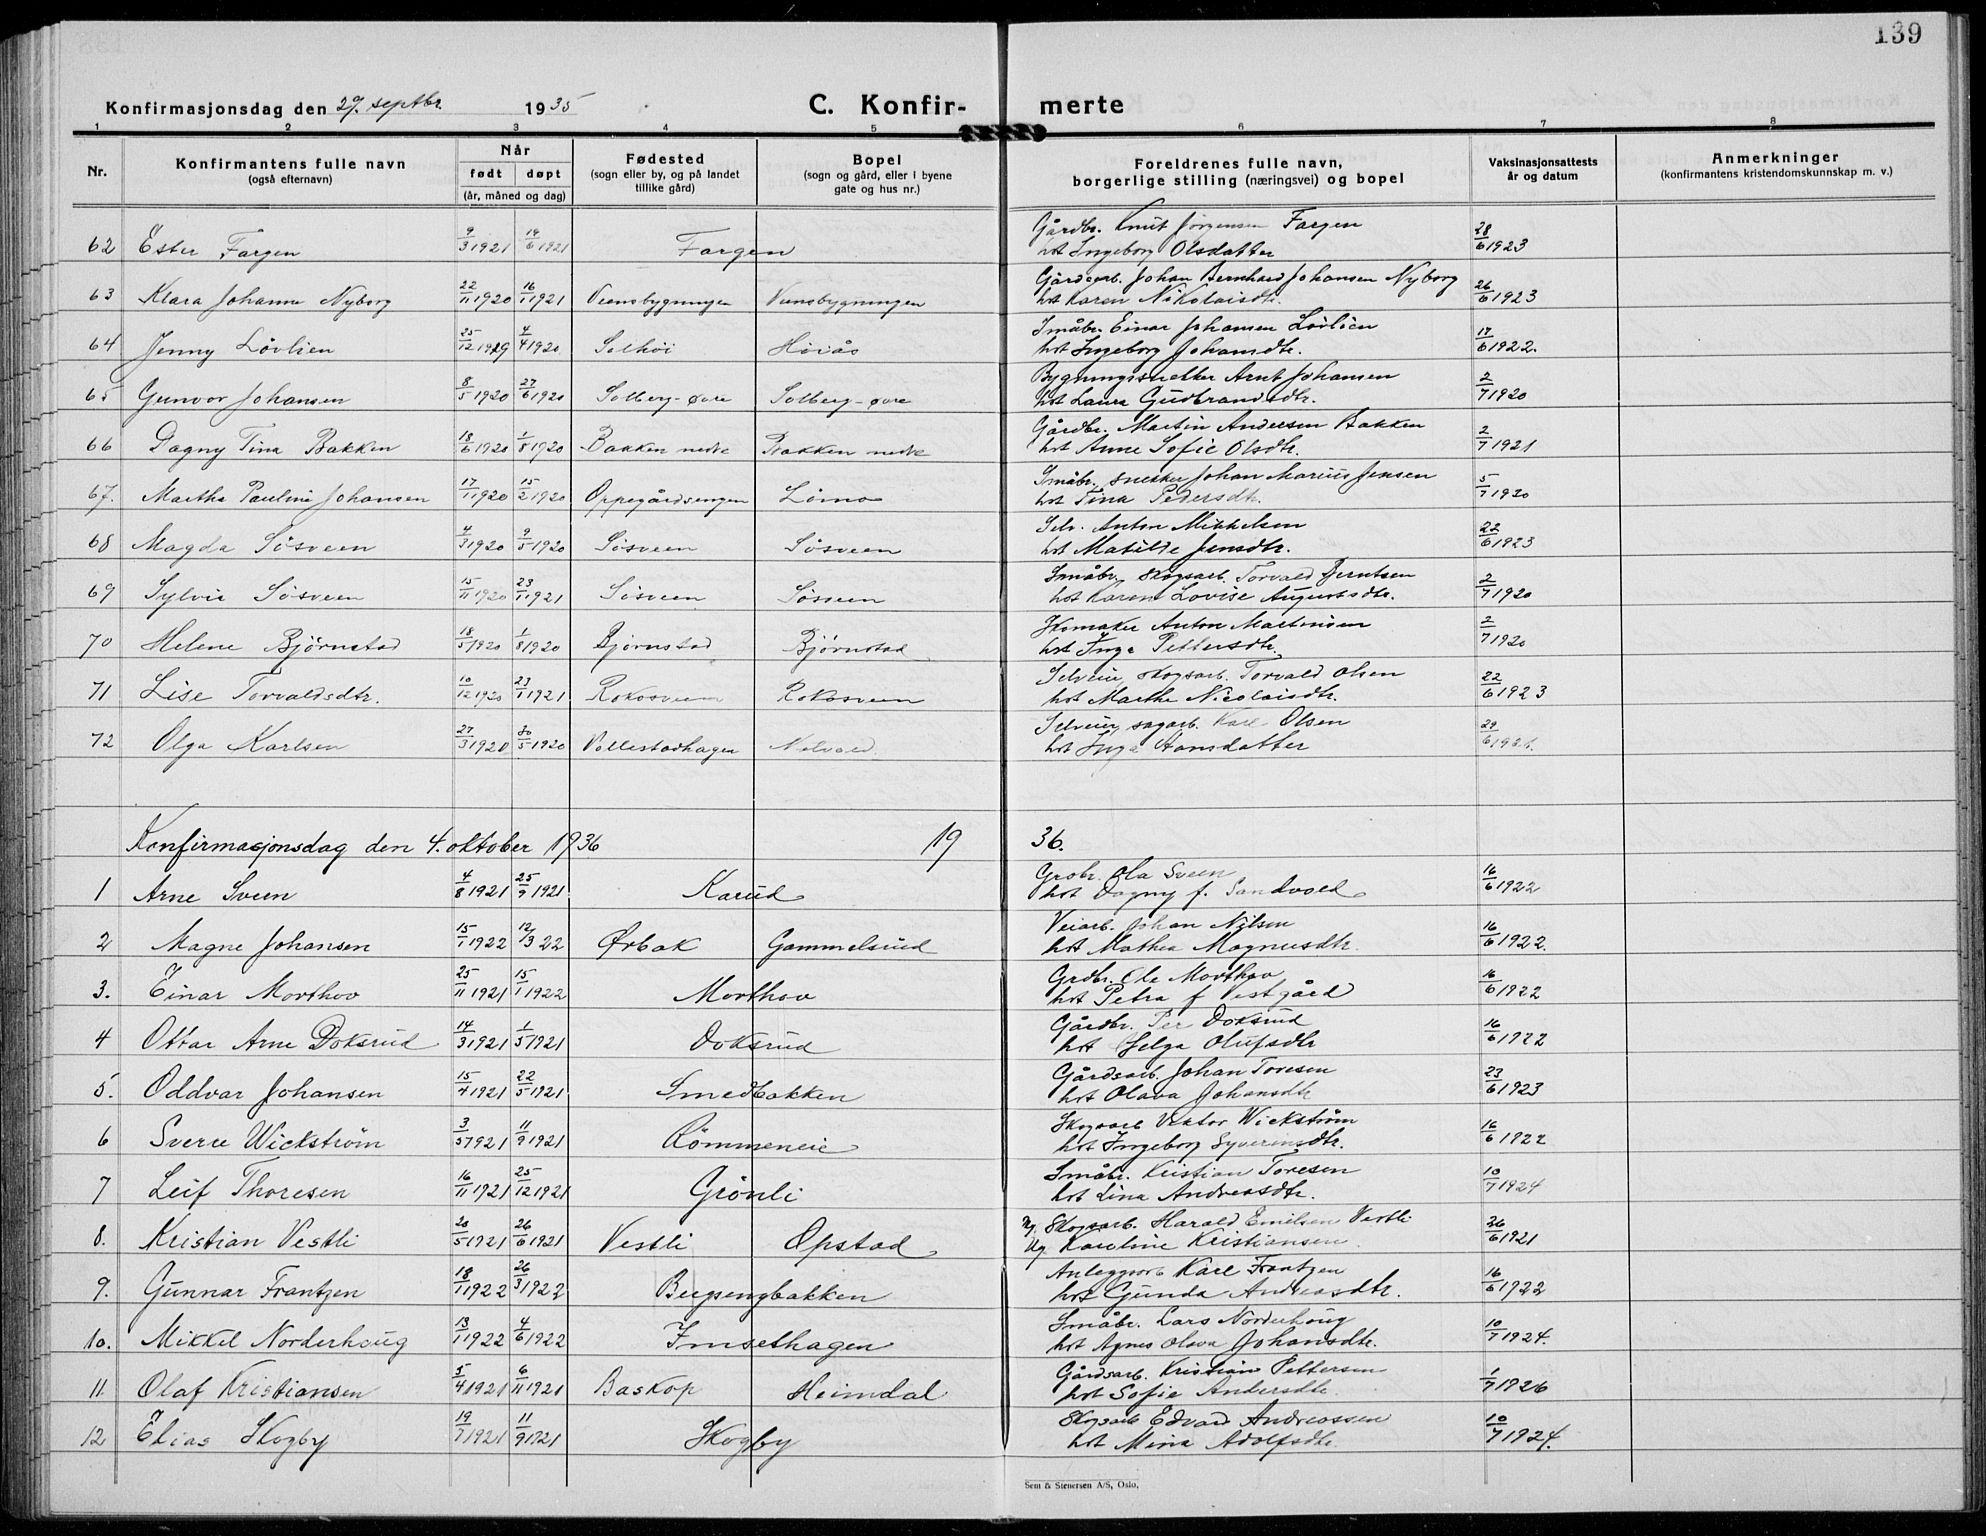 139
Konfirmasjonsdag den 29. septbr. 1935 C. Konfir- merte
1 2 3 4 5 6 7 8
Nr. Konfirmantens fulle navn (også efternavn) Når født døpt (år, måned og dag) Fødested (sogn eller by, og på landet tillike gård) Bopel (sogn og gård, eller i byene gate og hus nr.) Foreldrenes fulle navn, borgerlige stilling (næringsvei) og bopel Vaksinasjonsattests år og datum Anmerkninger (konfirmantens kristendomskunnskap m. v.)
62 Ester Fargen 9/3 1921 19/6 1921 Fargen Gårdbr. Knut Jørgensen Fargen
hst Ingeborg Olsdatter 28/6 1923
63 Klara Johanne Nyborg 22/11 1920 16/1 1921 Veensbygningen Veensbygningen Gårdsarb. Johan Bernhard Johansen Nyborg
hst Karen Nikolaisdtr. 26/6 1923
64 Jenny Lövlien 25/12 1919 4/4 1920 Solhöi Höiås Småbr. Einar Johansen Lövlien
hst Ingeborg Johansdtr. 17/6 1922.
65 Gunvor Johansen 8/5 1920 27/6 1920 Solberg-øvre Solberg-øvre Bygningssnekker Arnt Johansen
hst Laura Gudbrandsdtr. 2/7 1920
66 Dagny Tina Bakken 18/6 1920 1/8 1920 Bakken nedre Bakken nedre Gårdbr. Martin Andersen Bakken
hst Anne Sofie Olsdtr. 2/7 1921
67. Martha Pauline Johansen 17/1 1920 15/2 1920 Oppegårdsengen Lömo Småbr. snekker Johan Marius Jensen
hst Tina Pedersdtr. 5/7 1920
68 Magda Sösveen 4/3 1920 9/5 1920 Sösveen Sösveen Selv. Anton Mikkelsen
hst Matilde Jensdtr. 22/6 1923
69 Sylvia Sösveen 15/11 1920 23/1 1921 Sösveen Sösveen Småbr. skogsarb. Torvald Berntsen
hst Karen Lovise Augustsdtr. 2/7 1920
70 Helene Bjørnstad 18/5 1920 1/8 1920 Bjørnstad Bjørnstad Skomaker Anton Martinsen
hst Inga Pettersdtr. 2/7 1920
71 Lise Torvaldsdtr. 10/12 1920 23/1 1921 Rokosveen Rokosveen Selveier, skogsarb. Torvald Olsen
hst Marthe Nicolaisdtr. 22/6 1923
72 Olga Karlsen 27/3 1920 30/5 1920 Vollestadhagen Selveier, sagarb. Karl Olsen
hst Inga Hansdatter
Konfirmasjonsdag den 4. oktober 1936 19 36.
1 Arne Sveen 4/8 1921 25/9 1921. Karud Grdbr. Ola Sveen
hst Dagny f. Sandvold 16/6 1922
2 Magne Johansen 15/1 1922 12/3 22 Ørbak Gammelsrud Veiarb. Johan Nilsen
hst Mathea Magnusdtr. 16/6 1922.
3. Einar Morthov 25/11 1921 15/1 1922 Morthov Grdbr. Ole Morthov
hst Petra f Vestgård 16/6 1922
4 Ottar Arne Doksrud 14/3 1921 1/5 1921 Doksrud Gårdbr. Per Doksrud
hst Helga Olufsdtr 16/6 1922
5. Oddvar Johansen 15/4 1921 22/5 1921 Smedbakken Gårdsarb. Johan Toresen
hst Olava Johansdtr 23/6 1923
6 Sverre Wickström 3/5 1921 11/9 1921 Römmeneie Skogsarb Viktor Wickström
hst Ingeborg Syverinsdtr. 16/6 1922
7 Leif Thoresen 16/11 1921 25/12 1921 Grönli Småbr. Kristian Toresen
hst Lina Andreasdtr. 10/7 1924
8. Kristian Vestli 20/5 1921 26/6 1921 Vestli Opstad Ug. Skogsarb. Harald Emilsen Vestli
Ug. Karoline Kristiansen 26/6 1921
9. Gunnar Frantzen 18/1 1922 26/3 1922 Bergsengbakken Anleggsarb Karl Frantzen
hst Gunda Andreasdtr. 16/6 1922
10. Mikkel Norderhoug 13/1 1922 4/6 1922 Imsethagen Småbr. Lars Norderhoug
hst Agnes Olava Johansdtr. 10/7 1924.
11 Olaf Kristiansen 5/4 1921 6/11 1921 Baskop Heimdal Gårdsarb. Kristian Pettersen
hst Sofie Andersdtr. 1/7 1926
12 Elias Skogby 19/7 1921 11/9 1921 Skogby Skogsarb Edvard Andreassen
hst Mina Adolfsdtr 10/7 1924.
Sem & Stenersen A/S, Oslo,